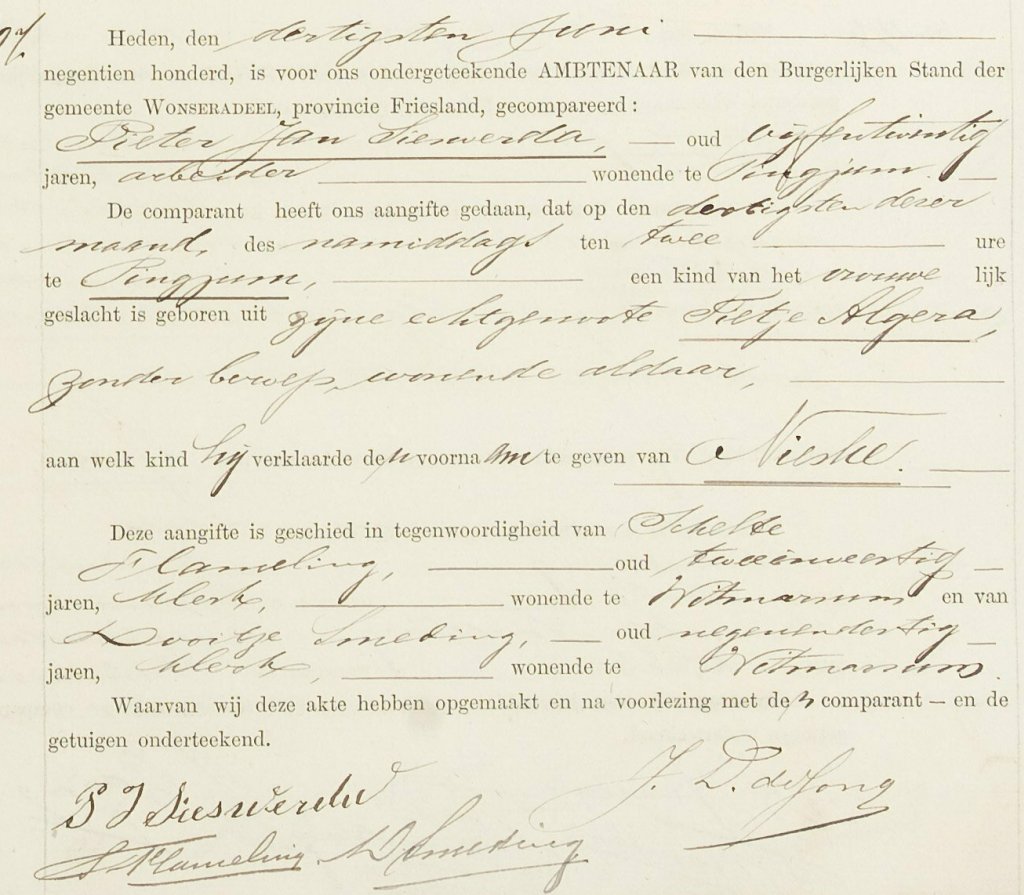 97.
Heden, den dertigsten Juni
negentien honderd, is voor ons ondergeteekende AMBTENAAR van den Burgerlijken Stand der
gemeente WONSERADEEL, provincie Friesland, gecompareerd:
Pieter Jan Sieswerda, oud vijfentwintig
jaren, arbeider wonende te Pingjum.
De comparant heeft ons aangifte gedaan, dat op den dertigsten dezer
maand, des namiddags ten twee ure
te Pingjum, een kind van het vrouwe lijk
geslacht is geboren uit zijne echtgenoote Tietje Algera,
zonder beroep, wonende aldaar,
aan welk kind hij verklaarde den voornaam te geven van Nieske.
Deze aangifte is geschied in tegenwoordigheid van Schelte
Flameling, oud tweeënveertig
jaren, klerk, wonende te Witmarsum en van
Dooitje Smeding, oud negenendertig
jaren, klerk, wonende te Witmarsum.
Waarvan wij deze akte hebben opgemaakt en na voorlezing met den comparant – en de
getuigen onderteekend.
P J Sieswerda
J. D. de Jong
S Flameling D Smeding